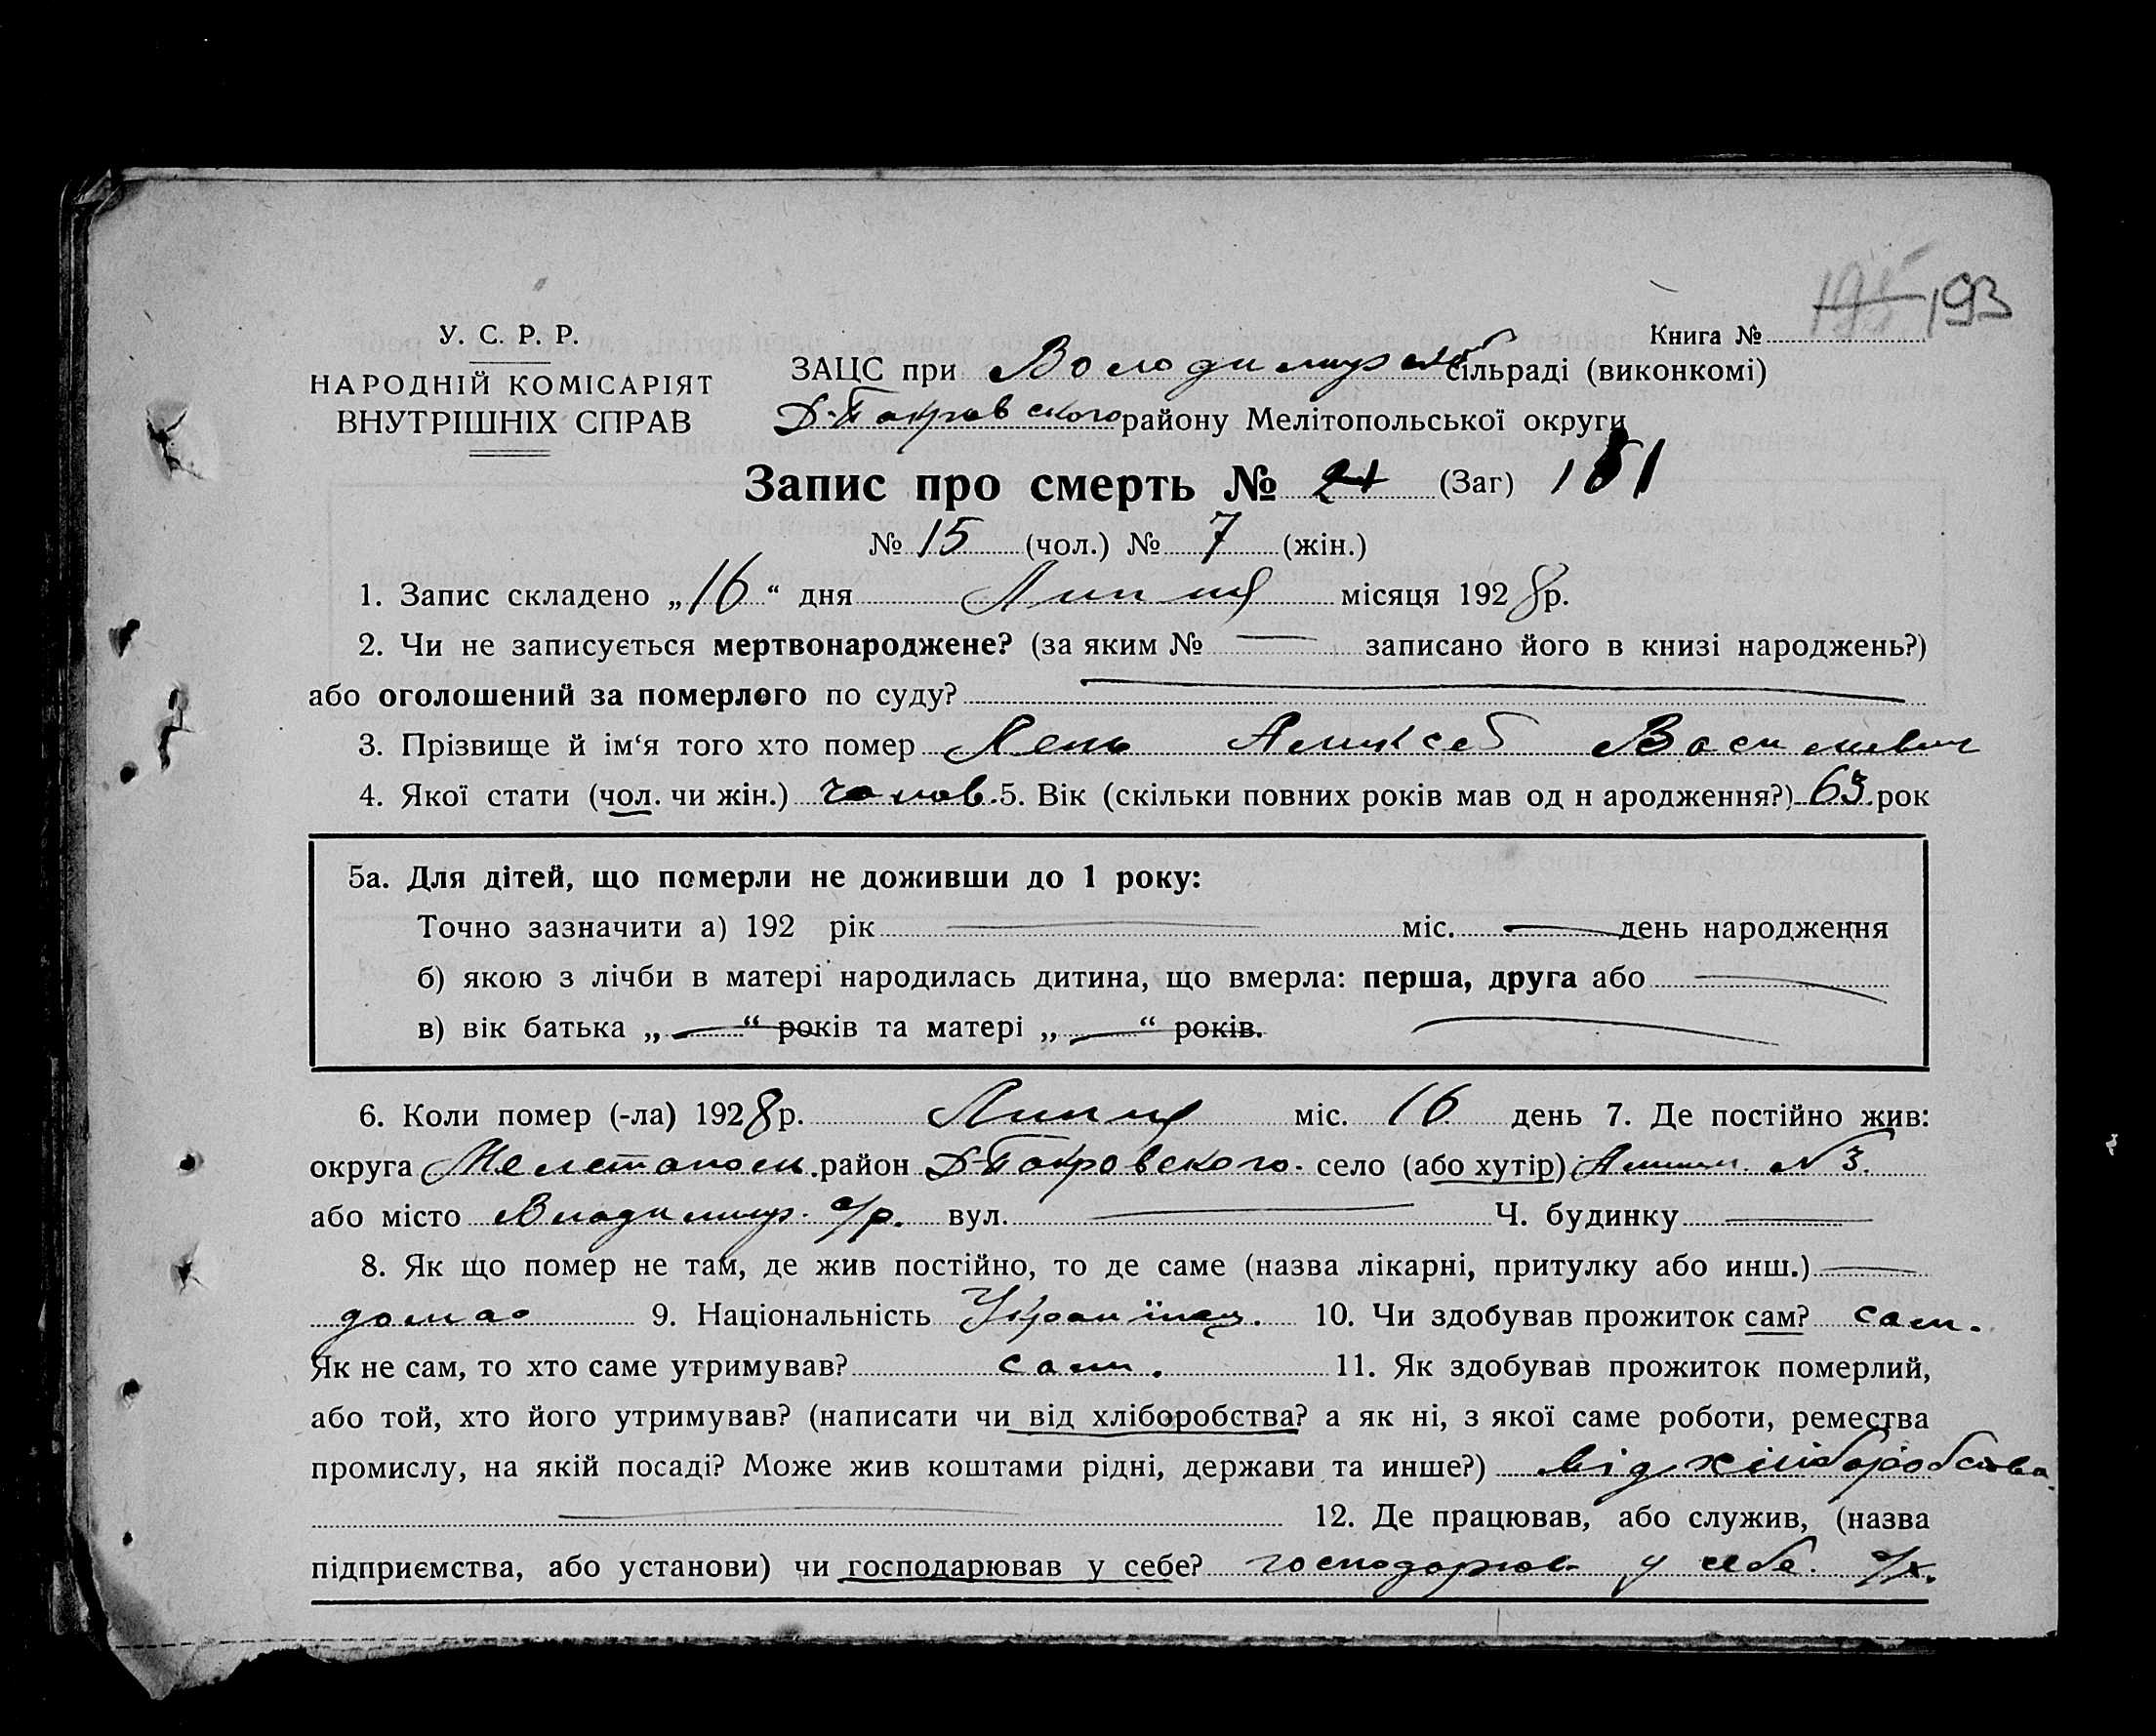 193
У. С. Р. Р.
НАРОДНІЙ КОМІСАРІЯТ
ВНУТРІШНІХ СПРАВ
Книга №
ЗАЦС при Володимирській сільраді (виконкомі)
Д-Покровського району Мелітопольської округи
Запис про смерть № 21 (Заг)
№ 15 (чол.) № 7 (жін.)
1. Запис складено „16“ дня Липця місяця 1928 р.
2. Чи не записується мертвонароджене? (за яким № — записано його в книзі народжень?)
або оголошений за померлого по суду? —
3. Прізвище й ім‘я того хто помер Лень Васильевич
4. Якої стати (чол. чи жін.) чолов. 5. Вік (скільки повних років мав од н ародження?) 63 рок
5а. Для дітей, що померли не доживши до 1 року:
Точно зазначити а) 192 рік — міс. — день народження
б) якою з лічби в матері народилась дитина, що вмерла: перша, друга або —
в) вік батька „—“ років та матері „—“ років.
6. Коли помер (-ла) 1928 р. Липця міс. 16 день 7. Де постійно жив:
округа Мелетополь. район Д-Покровського. село (або хутір) № 3.
або місто Владимир. с/р. вул. — Ч. будинку —
8. Як що помер не там, де жив постійно, то де саме (назва лікарні, притулку або инш.) —
дома 9. Національність Украинец. 10. Чи здобував прожиток сам? сам.
Як не сам, то хто саме утримував? сам. 11. Як здобував прожиток померлий,
або той, хто його утримував? (написати чи від хліборобства? а як ні, з якої саме роботи, ремества
промислу, на якій посаді? Може жив коштами рідні, держави та инше?) від хліборобства.
— 12. Де працював, або служив, (назва
підприємства, або установи) чи господарював у себе? господарював у себе. с/х.